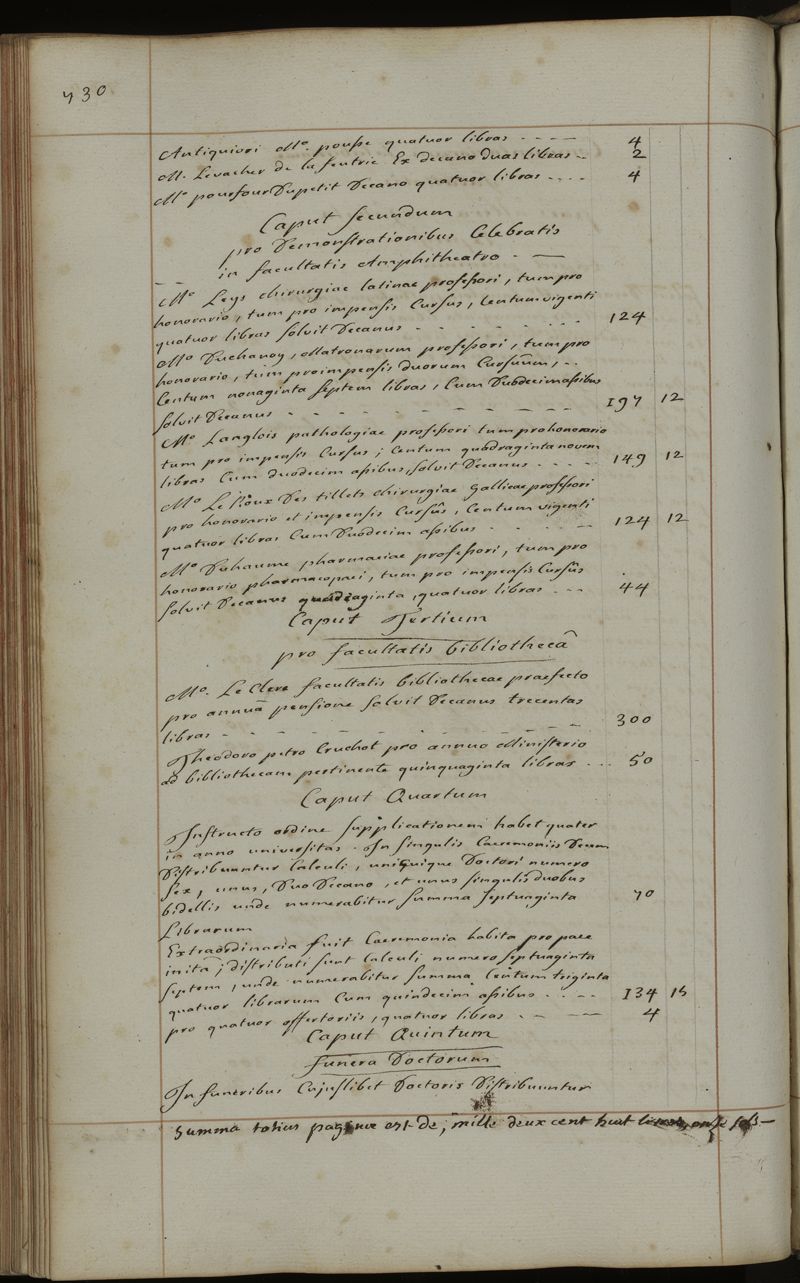 430
Antiquiori Mo. pousse quatuor libras - - - - 4
M. Levacher de la feutrie Ex decano duas libras - - 2
Mo pourfour Dupetit Decano quatuor libras - - - - 4
Caput Secundum
pro Demonstrationibus Celebratis
in facultatis Amphitheatro - —
Mo Leys chirurgiae latinae professori, tum pro
honorario, tum pro impensis Cursus, Centum viginti
quatuor libras solvit Decanus - - - - - - - 124
Mo Duchanoy, Matronarum professori, tum pro
honorario, tum pro impensis duorum Cursuum, - -
Centum nonaginta septem libras, Cum Duodecim assibus
solvit Decanus - - - - - - - - - 197 12
Mo Langlois pathologiae professori tum pro honorario
tum pro impensis Cursus; Centum quadraginta novem
libras Cum duodecim assibus, solvit Decanus - - - - 149 12
Mo Le Roux Des tillets chirurgiae gallicae professori
pro honorario et impensis Cursûs, Centum viginti
quatuor libras Cum Duodecim assibus - - - - - 124 12
Mo Duhaume pharmaciae professori, tum pro
honorario pharmacopaei, tum pro impensis Cursûs
solvit Decanus quadraginta, quatuor libras - - - 44
Caput Tertium
pro facultatis bibliothecâ
Mo. Le Clerc facultatis bibliothecae praefecto
pro annuâ pensione solvit Decanus trecentas
libras - - - - - - - - - - 300
Theodoro petro Cruchot pro annuo Ministerio
ad bibliothecam pertinente quinquaginta libras - - - 50
Caput Quartum
Instructo ordine supplicationem habet quater
in anno universitas. In singulis Caeremoniis Decem
Distribuuntur Calculi, unicuique Doctori numero
sex, unus, Duo Decano, et unus singulis duobus
bidellis unde numerabitur summa septuaginta 70
Librarum
Extraordinaria fuit Caeremonia habita pro pace
initâ; distributi sunt Calculi numero septuaginta
septem, unde numerabitur summa Centum triginta
quatuor librarum Cum quindecim assibus - - - - 134 15
pro quatuor offertoriis, quatuor libras - - — 4
Caput Quintum
funera Doctorum
In funeribus Cujuslibet Doctoris Distribuuntur
Summa totius paginae est de, mille deux cent huit livres, onze sols —